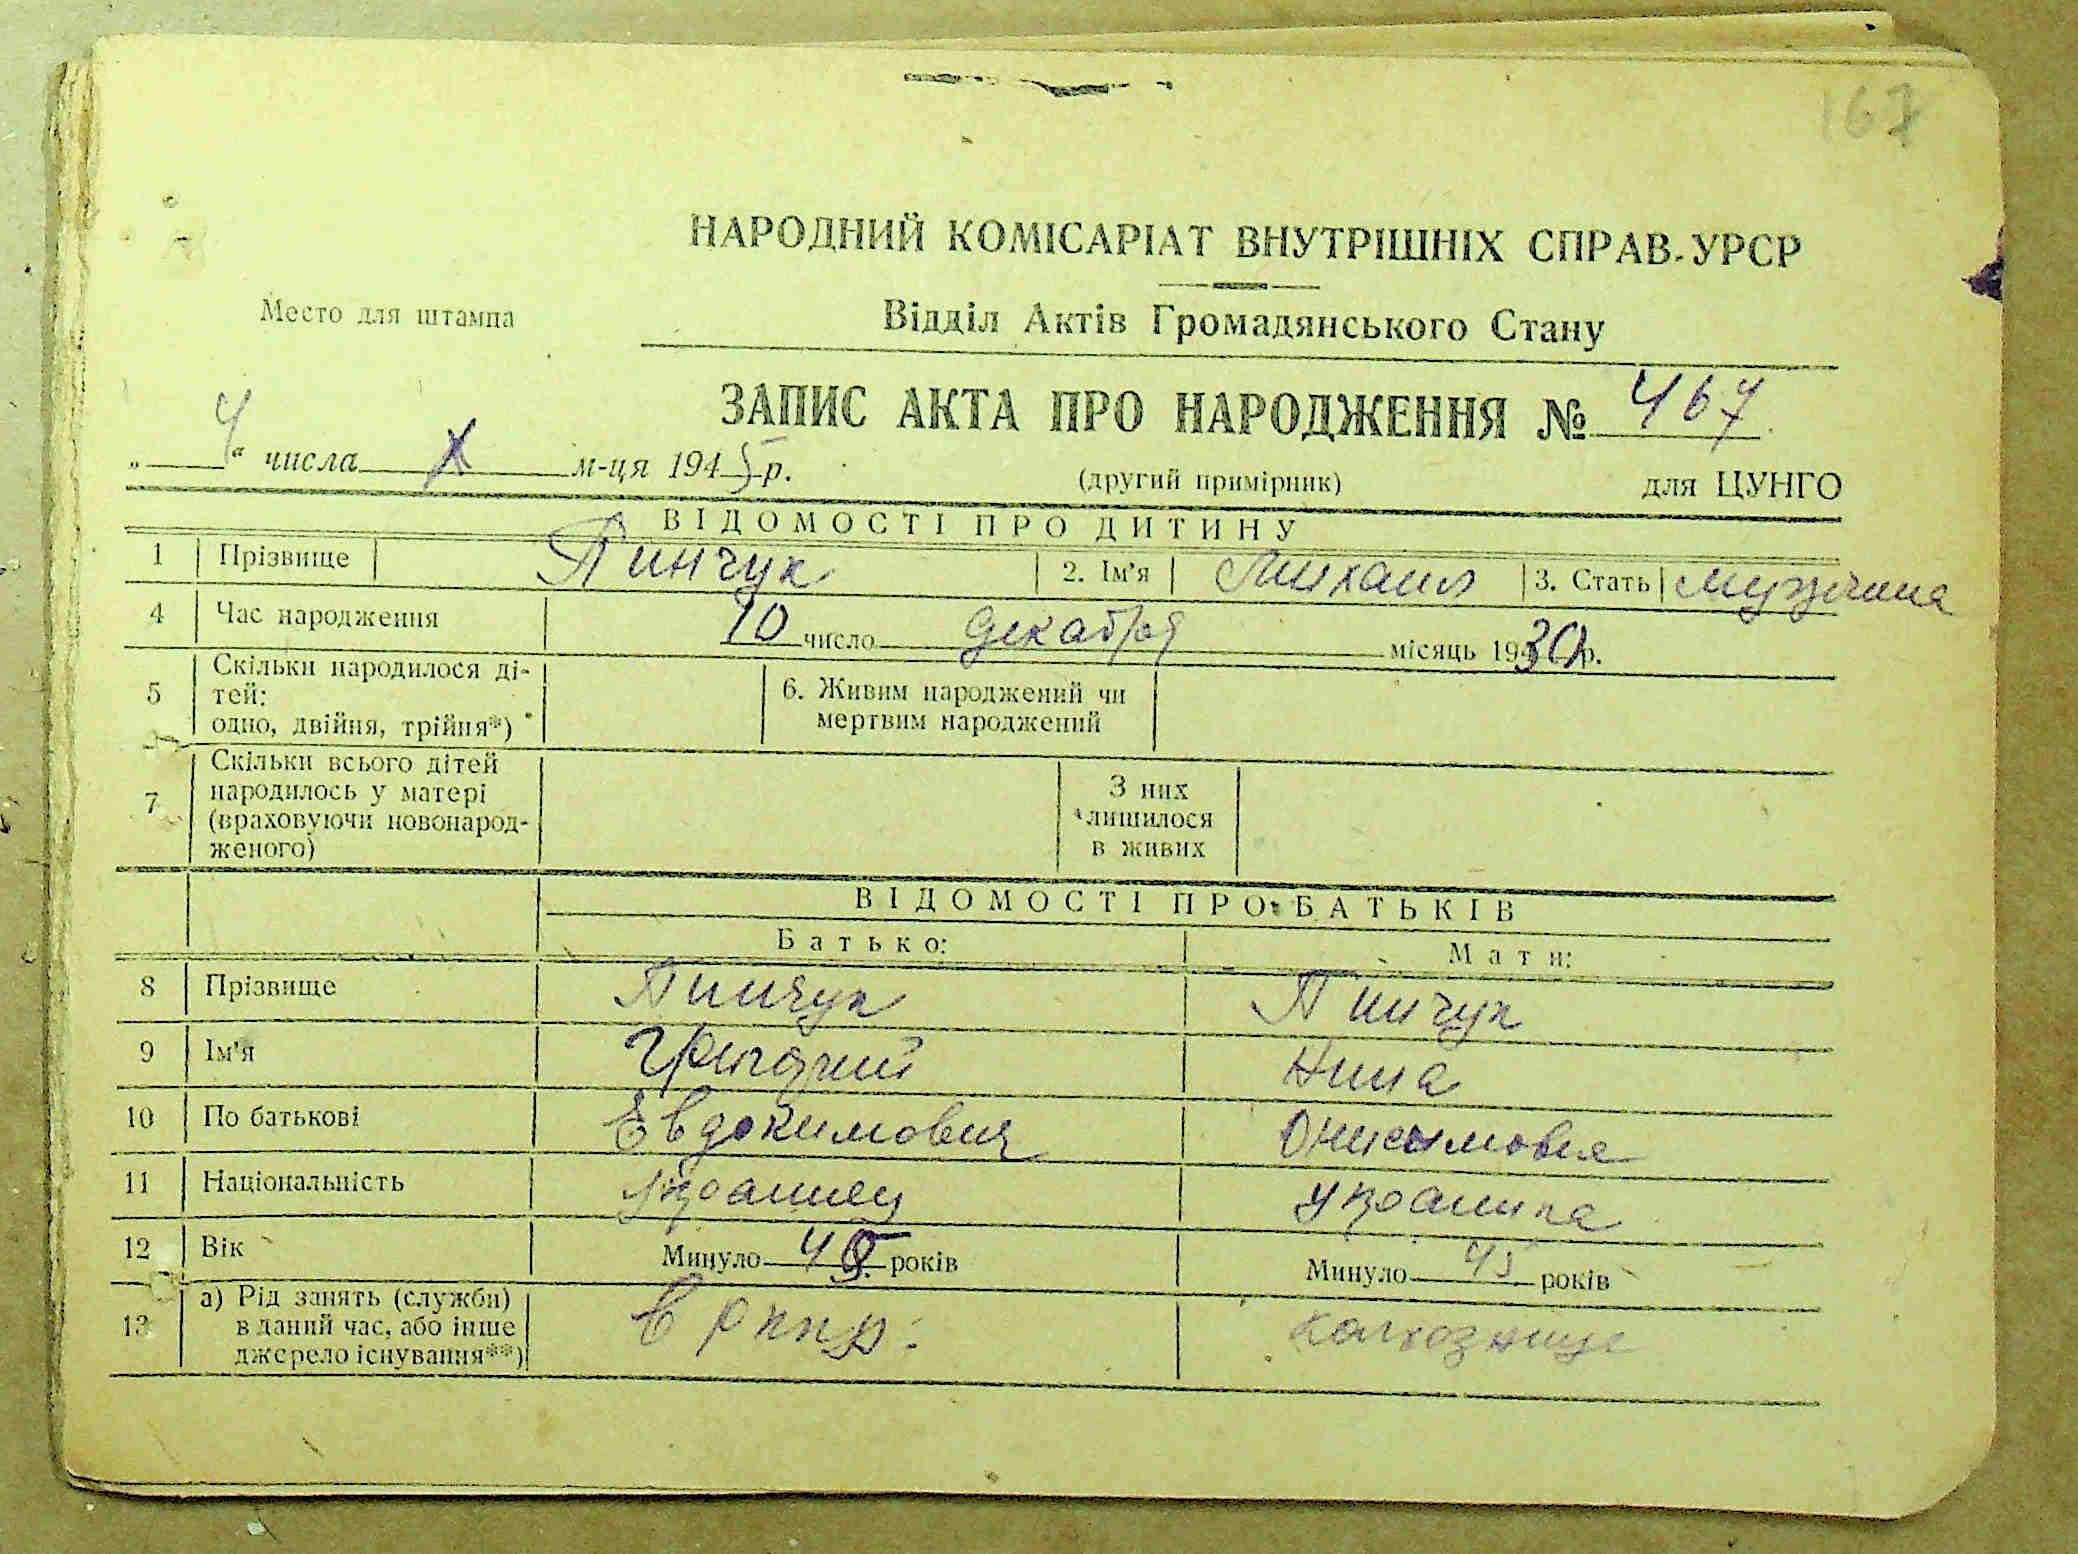 167
НАРОДНИЙ КОМІСАРІАТ ВНУТРІШНІХ СПРАВ УРСР
Место для штампа
Відділ Актів Громадянського Стану
ЗАПИС АКТА ПРО НАРОДЖЕННЯ № 467
„ 4 “ числа X м-ця 1945 р.
(другий примірник) для ЦУНГО
ВІДОМОСТІ ПРО ДИТИНУ
1 Прізвище Пинчук 2. Ім'я Михаил 3. Стать мужчина
4 Час народження 10 число декабря місяць 1930 р.
5 Скільки народилося ді-
тей:
одно, двійня, трійня*)
6. Живим народжений чи
мертвим народжений
7 Скільки всього дітей
народилось у матері
(враховуючи новонарод-
женого)
З них
лишилося
в живих
ВІДОМОСТІ ПРО БАТЬКІВ
Батько: Мати:
8 Прізвище Пинчук Пинчук
9 Ім'я Григорий Нина
10 По батькові Евдокимович Онисимовна
11 Національність украинец украинка
12 Вік Минуло 45 років Минуло 45 років
13 а) Рід занять (служби)
в даний час, або інше
джерело існування**)
в колхознице